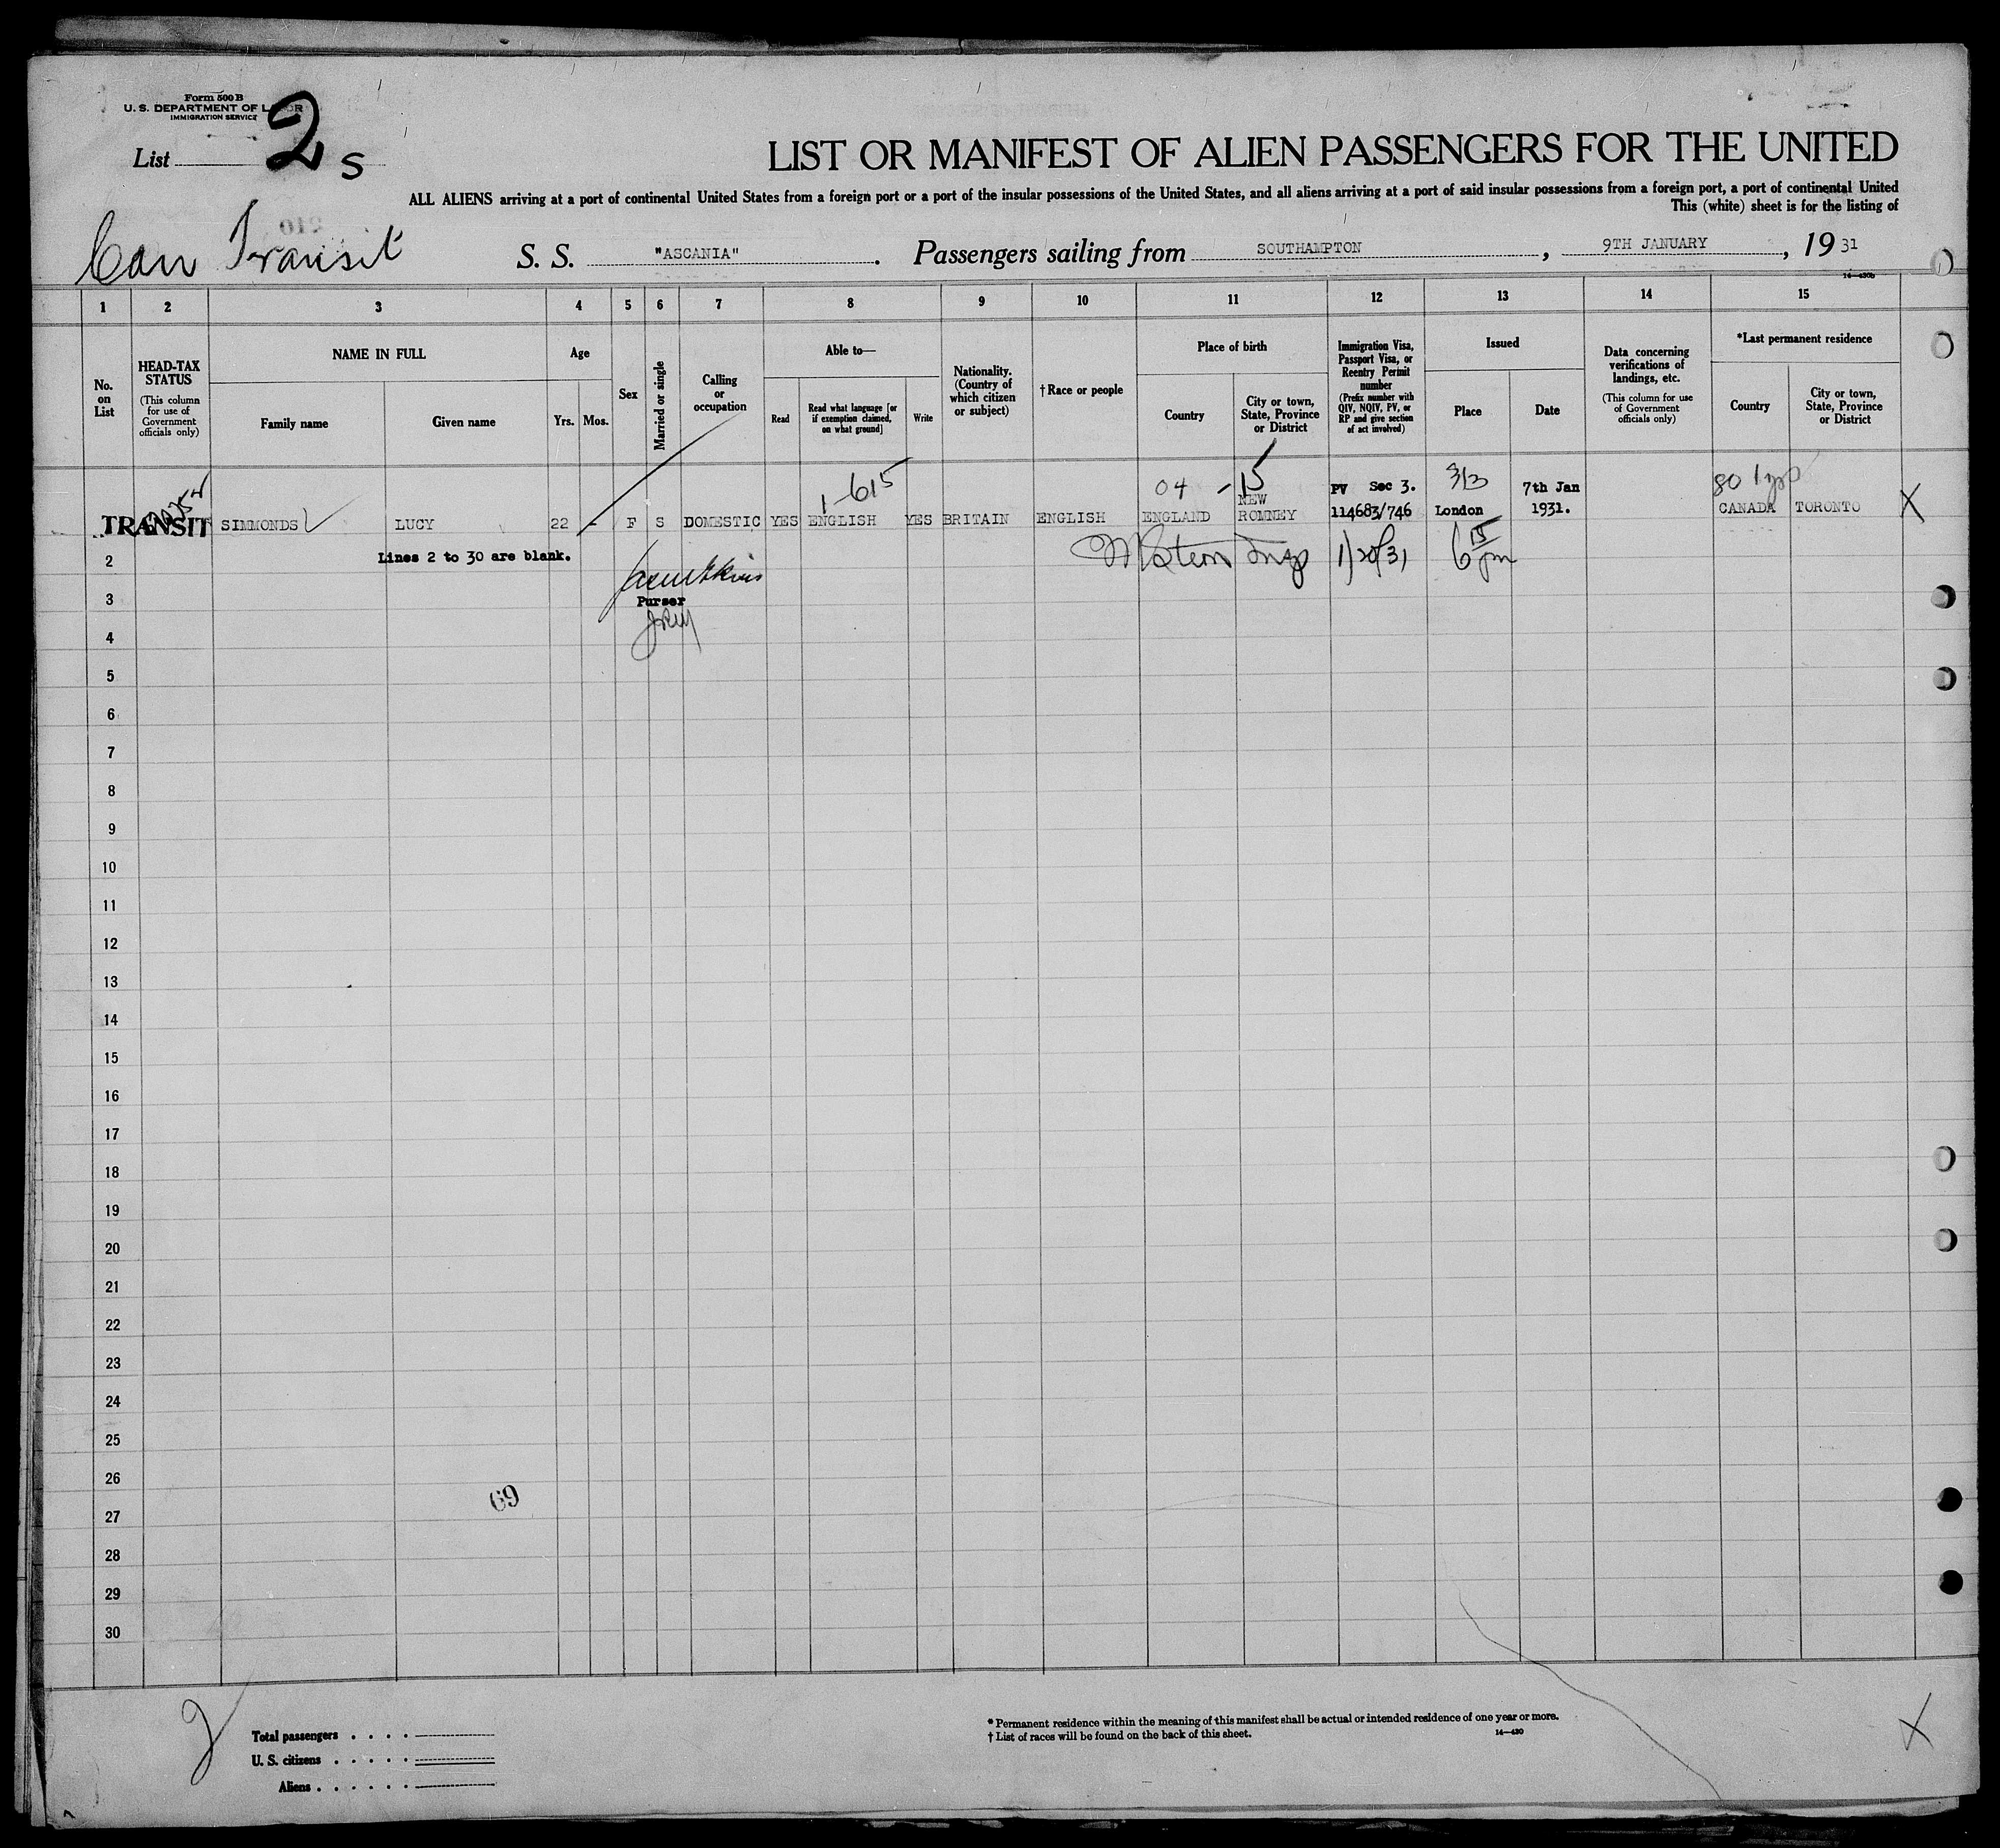 Form 500 B
U. S. DEPARTMENT OF LABOR
IMMIGRATION SERVICE
List 2 S
LIST OR MANIFEST OF ALIEN PASSENGERS FOR THE UNITED
ALL ALIENS arriving at a port of continental United States from a foreign port or a port of the insular possessions of the United States, and all aliens arriving at a port of said insular possessions from a foreign port, a port of continental United
This (white) sheet is for the listing of
Can Transit
S. S. "ASCANIA". Passengers sailing from SOUTHAMPTON, 9TH JANUARY, 19 31
14—430b
1 2 3 4 5 6 7 8 9 10 11 12 13 14 15
No. on List
HEAD-TAX STATUS
(This column for use of Government officials only)
NAME IN FULL
Family name
Given name
Age
Yrs. Mos.
Sex
Married or single
Calling or occupation
Able to—
Read
Read what language [or if exemption claimed, on what ground]
Write
Nationality. (Country of which citizen or subject)
† Race or people
Place of birth
Country
City or town, State, Province or District
Immigration Visa, Passport Visa, or Reentry Permit number
(Prefix number with QIV, NQIV, PV, or RP and give section of act involved)
Issued
Place
Date
Data concerning verifications of landings, etc.
(This column for use of Government officials only)
*Last permanent residence
Country
City or town, State, Province or District
1-615 04 - 15 PV Sec 3. 3/3 7th Jan 80 1 yr
TRANSIT SIMMONDS LUCY 22 - F S DOMESTIC YES ENGLISH YES BRITAIN ENGLISH ENGLAND NEW ROMNEY 114683/746 London 1931. CANADA TORONTO X
2 Lines 2 to 30 are blank. 1/20/31 6 15 pm
3 Purser
4
5
6
7
8
9
10
11
12
13
14
15
16
17
18
19
20
21
22
23
24
25
26
69
27
28
29
30
Total passengers
U. S. citizens
Aliens
* Permanent residence within the meaning of this manifest shall be actual or intended residence of one year or more.
† List of races will be found on the back of this sheet.
14—430
X